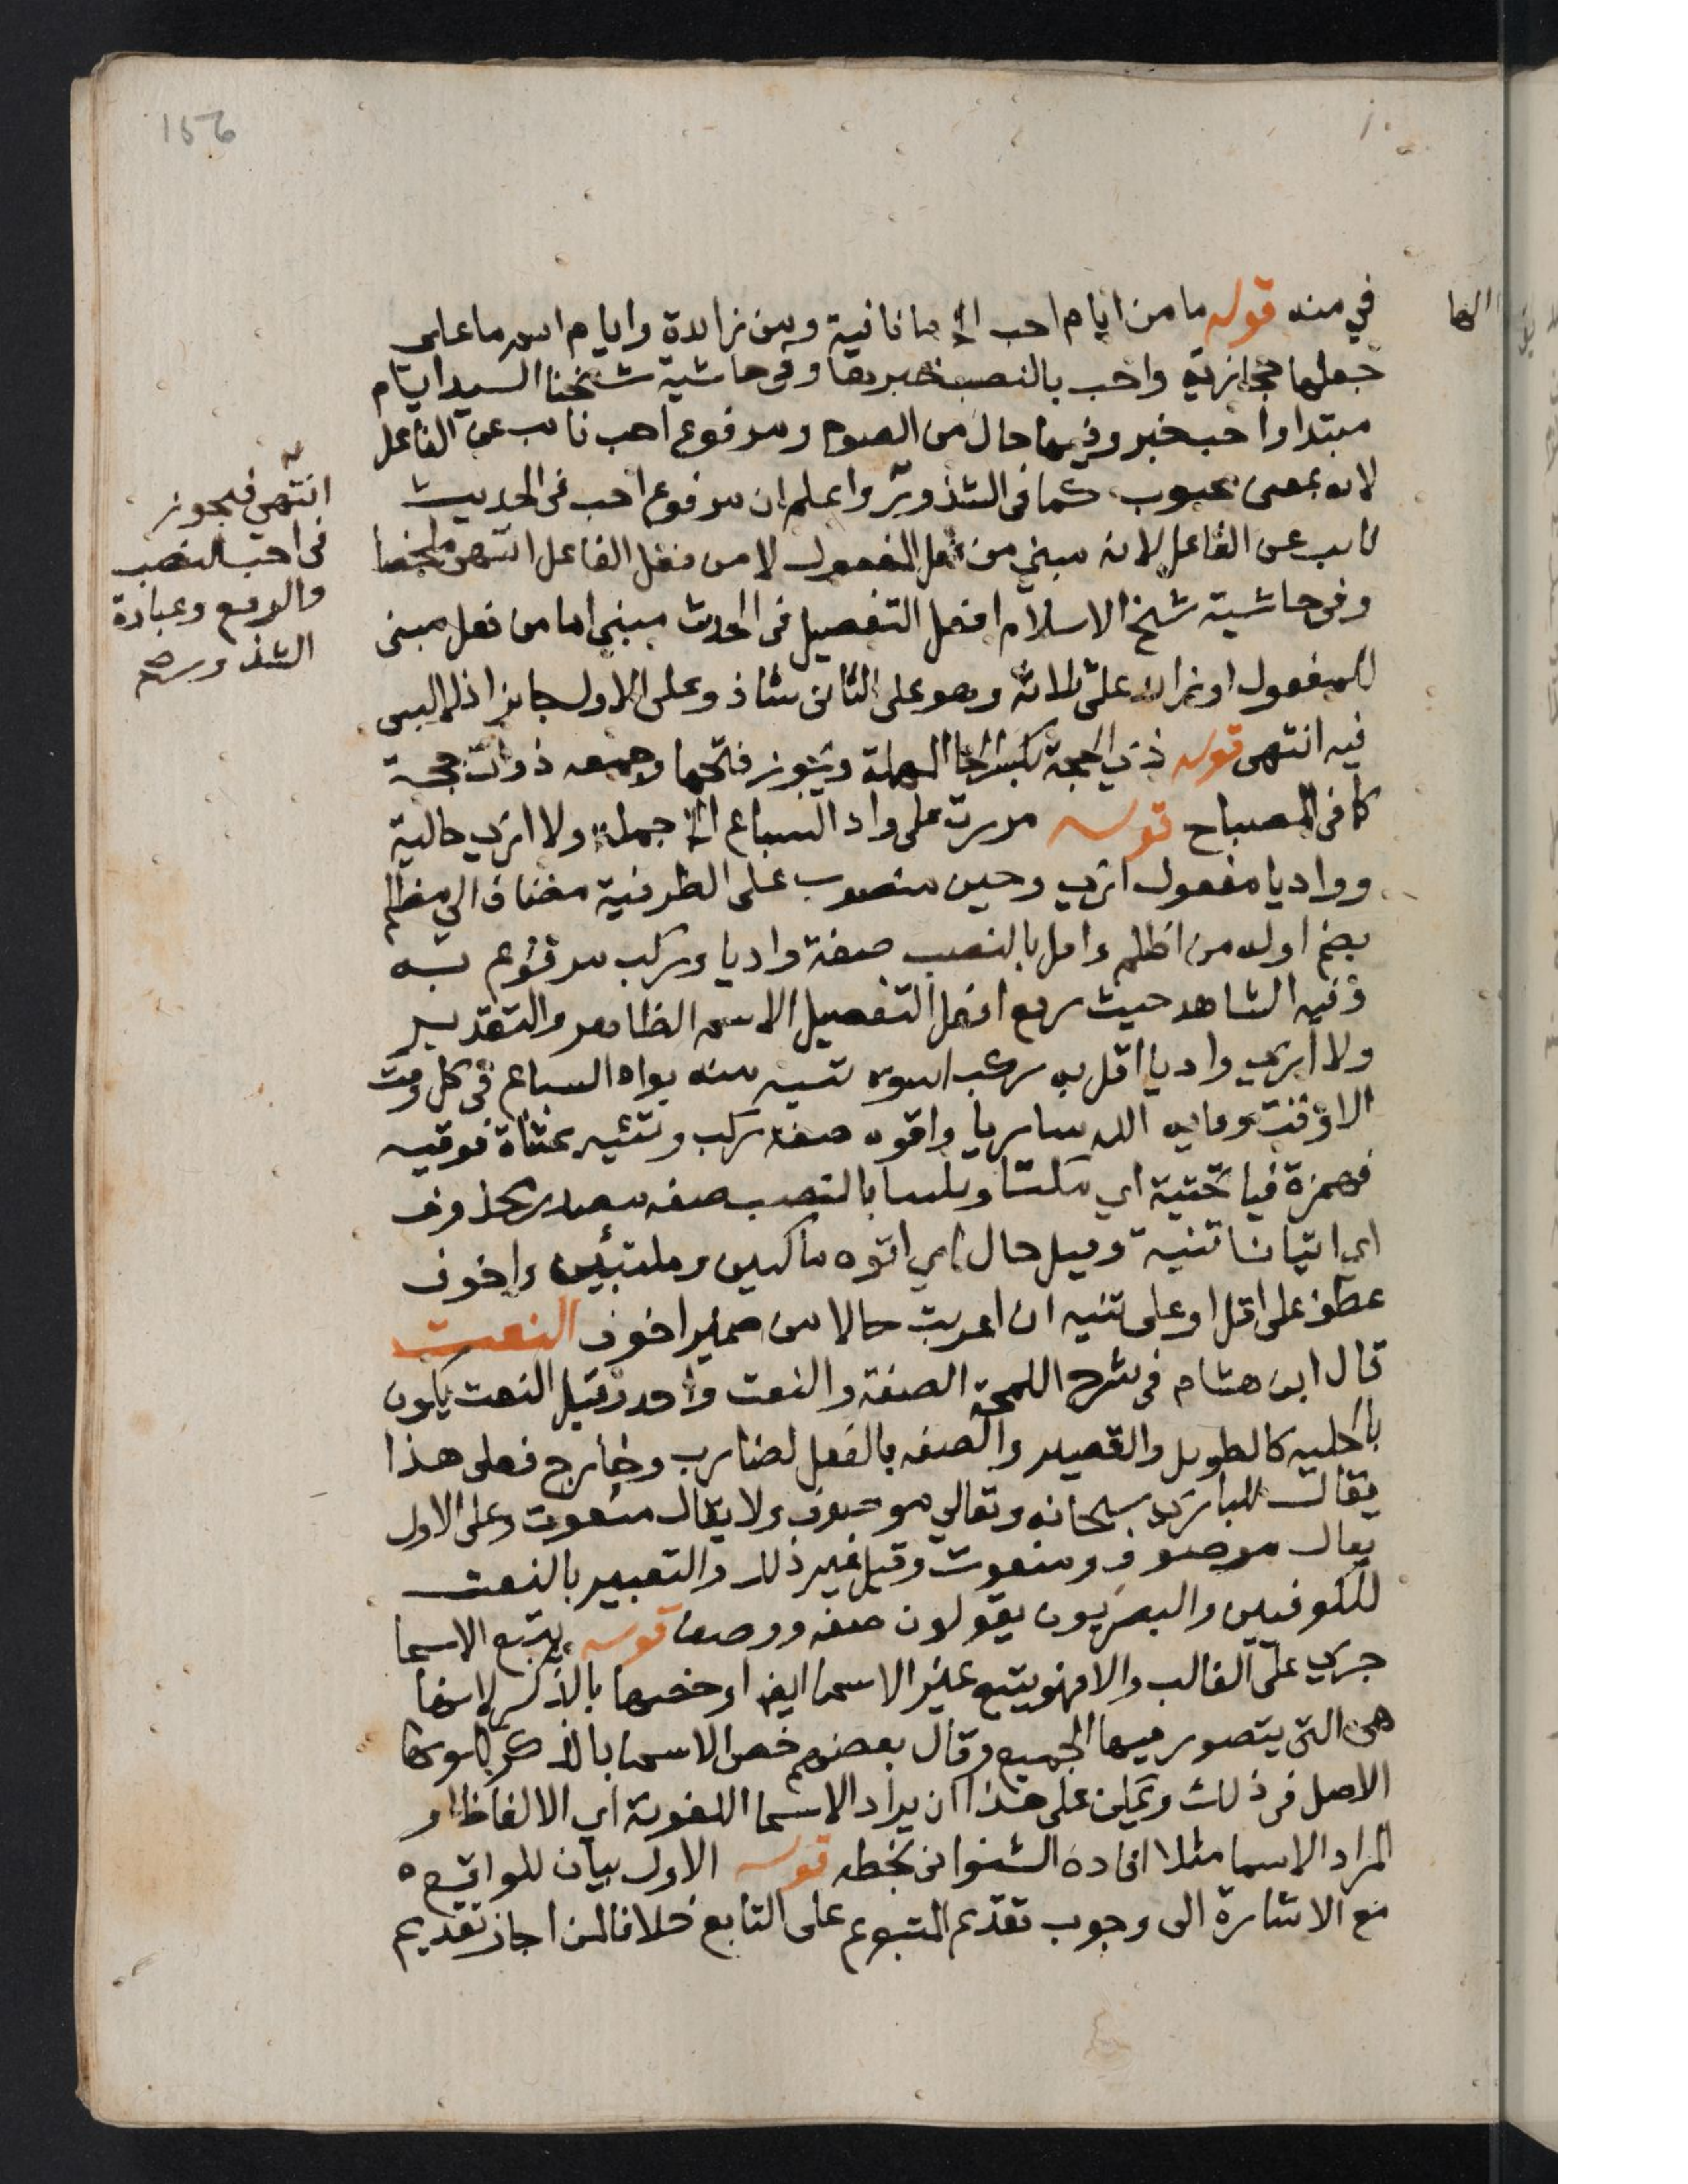 156
في منه قوله ما من ايام احب الخ ما نافية ومن زايدة وايام اسم ما على
جعلها حجازية واحب بالنصب خبرها وفى حاشية شيخنا السيد ايام
مبتدا واحب خبر وفيها حال من الصوم ومرفوع احب نايب عن الفاعل
لانه بمعنى محبوب كما فى الشذور واعلم ان مرفوع احب فى الحديث
نايب عن الفاعل لانه مبنى من فعل المفعول لا من فعل الفاعل انتهى ملخصا
وفى حاشية شيخ الاسلام افعل التفضيل فى الحديث مبنى اما من فعل مبنى
للمفعول او زايد على ثلاثة وهو على الثانى شاذ وعلى الاول جايز اذ لا لبس
فيه انتهى قوله ذى الحجة بكسر الحا المهملة ويجوز فتحها وجمعه ذوات حجة
كما فى المصباح قوله مررت على واد السباع الخ جملة ولا ارى حالية
وواديا مفعول ارى وحين منصوب على الظرفية مضاف الى مظلم
بضم اوله من اظلم واقل بالنصب صفة واديا وركب مرفوع به
وفيه الشاهد حيث رفع افعل التفضيل الاسم الظاهر والتقدير
ولا ارى واديا اقل به ركب اتوه تئيه منه بواد السباع فى كل وقت
الا وقت وقايه الله ساريا واتوه صفة ركب وتئيه بمثناة فوقيه
فهمزة فيا تحتية اى مكثا وتلبثا بالنصب صفه مصدر محذوف
اى اتيانا تئية وقيل حال اى اتوه ماكثين ومتلبثين واخوف
عطف على اقل او على تئيه ان اعربت حالا من ضمير اخوف النعت
قال ابن هشام فى شرح اللمحة الصفة والنعت واحد وقيل النعت يكون
بالحليه كالطويل والقصير والصفه بالفعل كضارب وخارج فعلى هذا
يقال للبارى سبحانه وتعالى موصوف ولا يقال منعوت وعلى الاول
يقال موصوف ومنعوت وقيل غير ذلك والتعبير بالنعت
للكوفيين والبصريون يقولون صفه ووصف قوله يتبع الاسما
جرى على الغالب والا فهو يتبع غير الاسما ايضا او خصها بالذكر لانها
هى التى يتصور فيها الجميع وقال بعضهم خص الاسما بالذكر لكونها
الاصل فى ذلك ويمكن على هذا ان يراد الاسما اللغوية اى الالفاظ او
المراد الاسما مثلا افاده الشنوانى بخطه قوله الاول بيان للواقع
مع الاشارة الى وجوب تقديم المتبوع على التابع خلافا لمن اجاز تقديم
انتهى فيجوز
فى احب النصب
والرفع وعبارة
الشذور صح